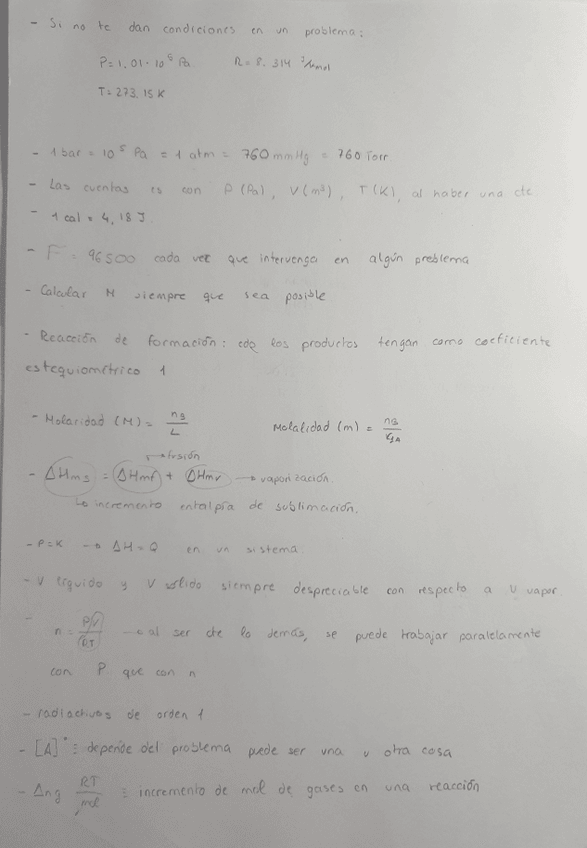 - Si no te dan condiciones en un problema:
P = 1,01 · 10⁵ Pa R = 8.314 J/K·mol
T = 273.15 K
- 1 bar = 10⁵ Pa = 1 atm = 760 mmHg = 760 Torr
- Las cuentas es con P (Pa), V (m³), T (K), al haber una cte.
- 1 cal = 4,18 J
- F = 96500 cada vez que intervenga en algún problema
- Calcular M siempre que sea posible
- Reacción de formación: los productos tengan como coeficiente
estequiométrico 1
- Molaridad (M) = nB/L Molalidad (m) = nB/KgA
→ fusión
- ΔHms = ΔHmf + ΔHmv → vaporización.
↳ incremento entalpía de sublimación.
- P = K → ΔH = Q en un sistema.
- V líquido y V sólido siempre despreciable con respecto a V vapor.
- n = PV/RT → al ser cte lo demás, se puede trabajar paralelamente
con P que con n
- radiactivos de orden 1
- [A]° ≡ depende del problema puede ser una u otra cosa
- Δng RT/mol ≡ incremento de mol de gases en una reacción